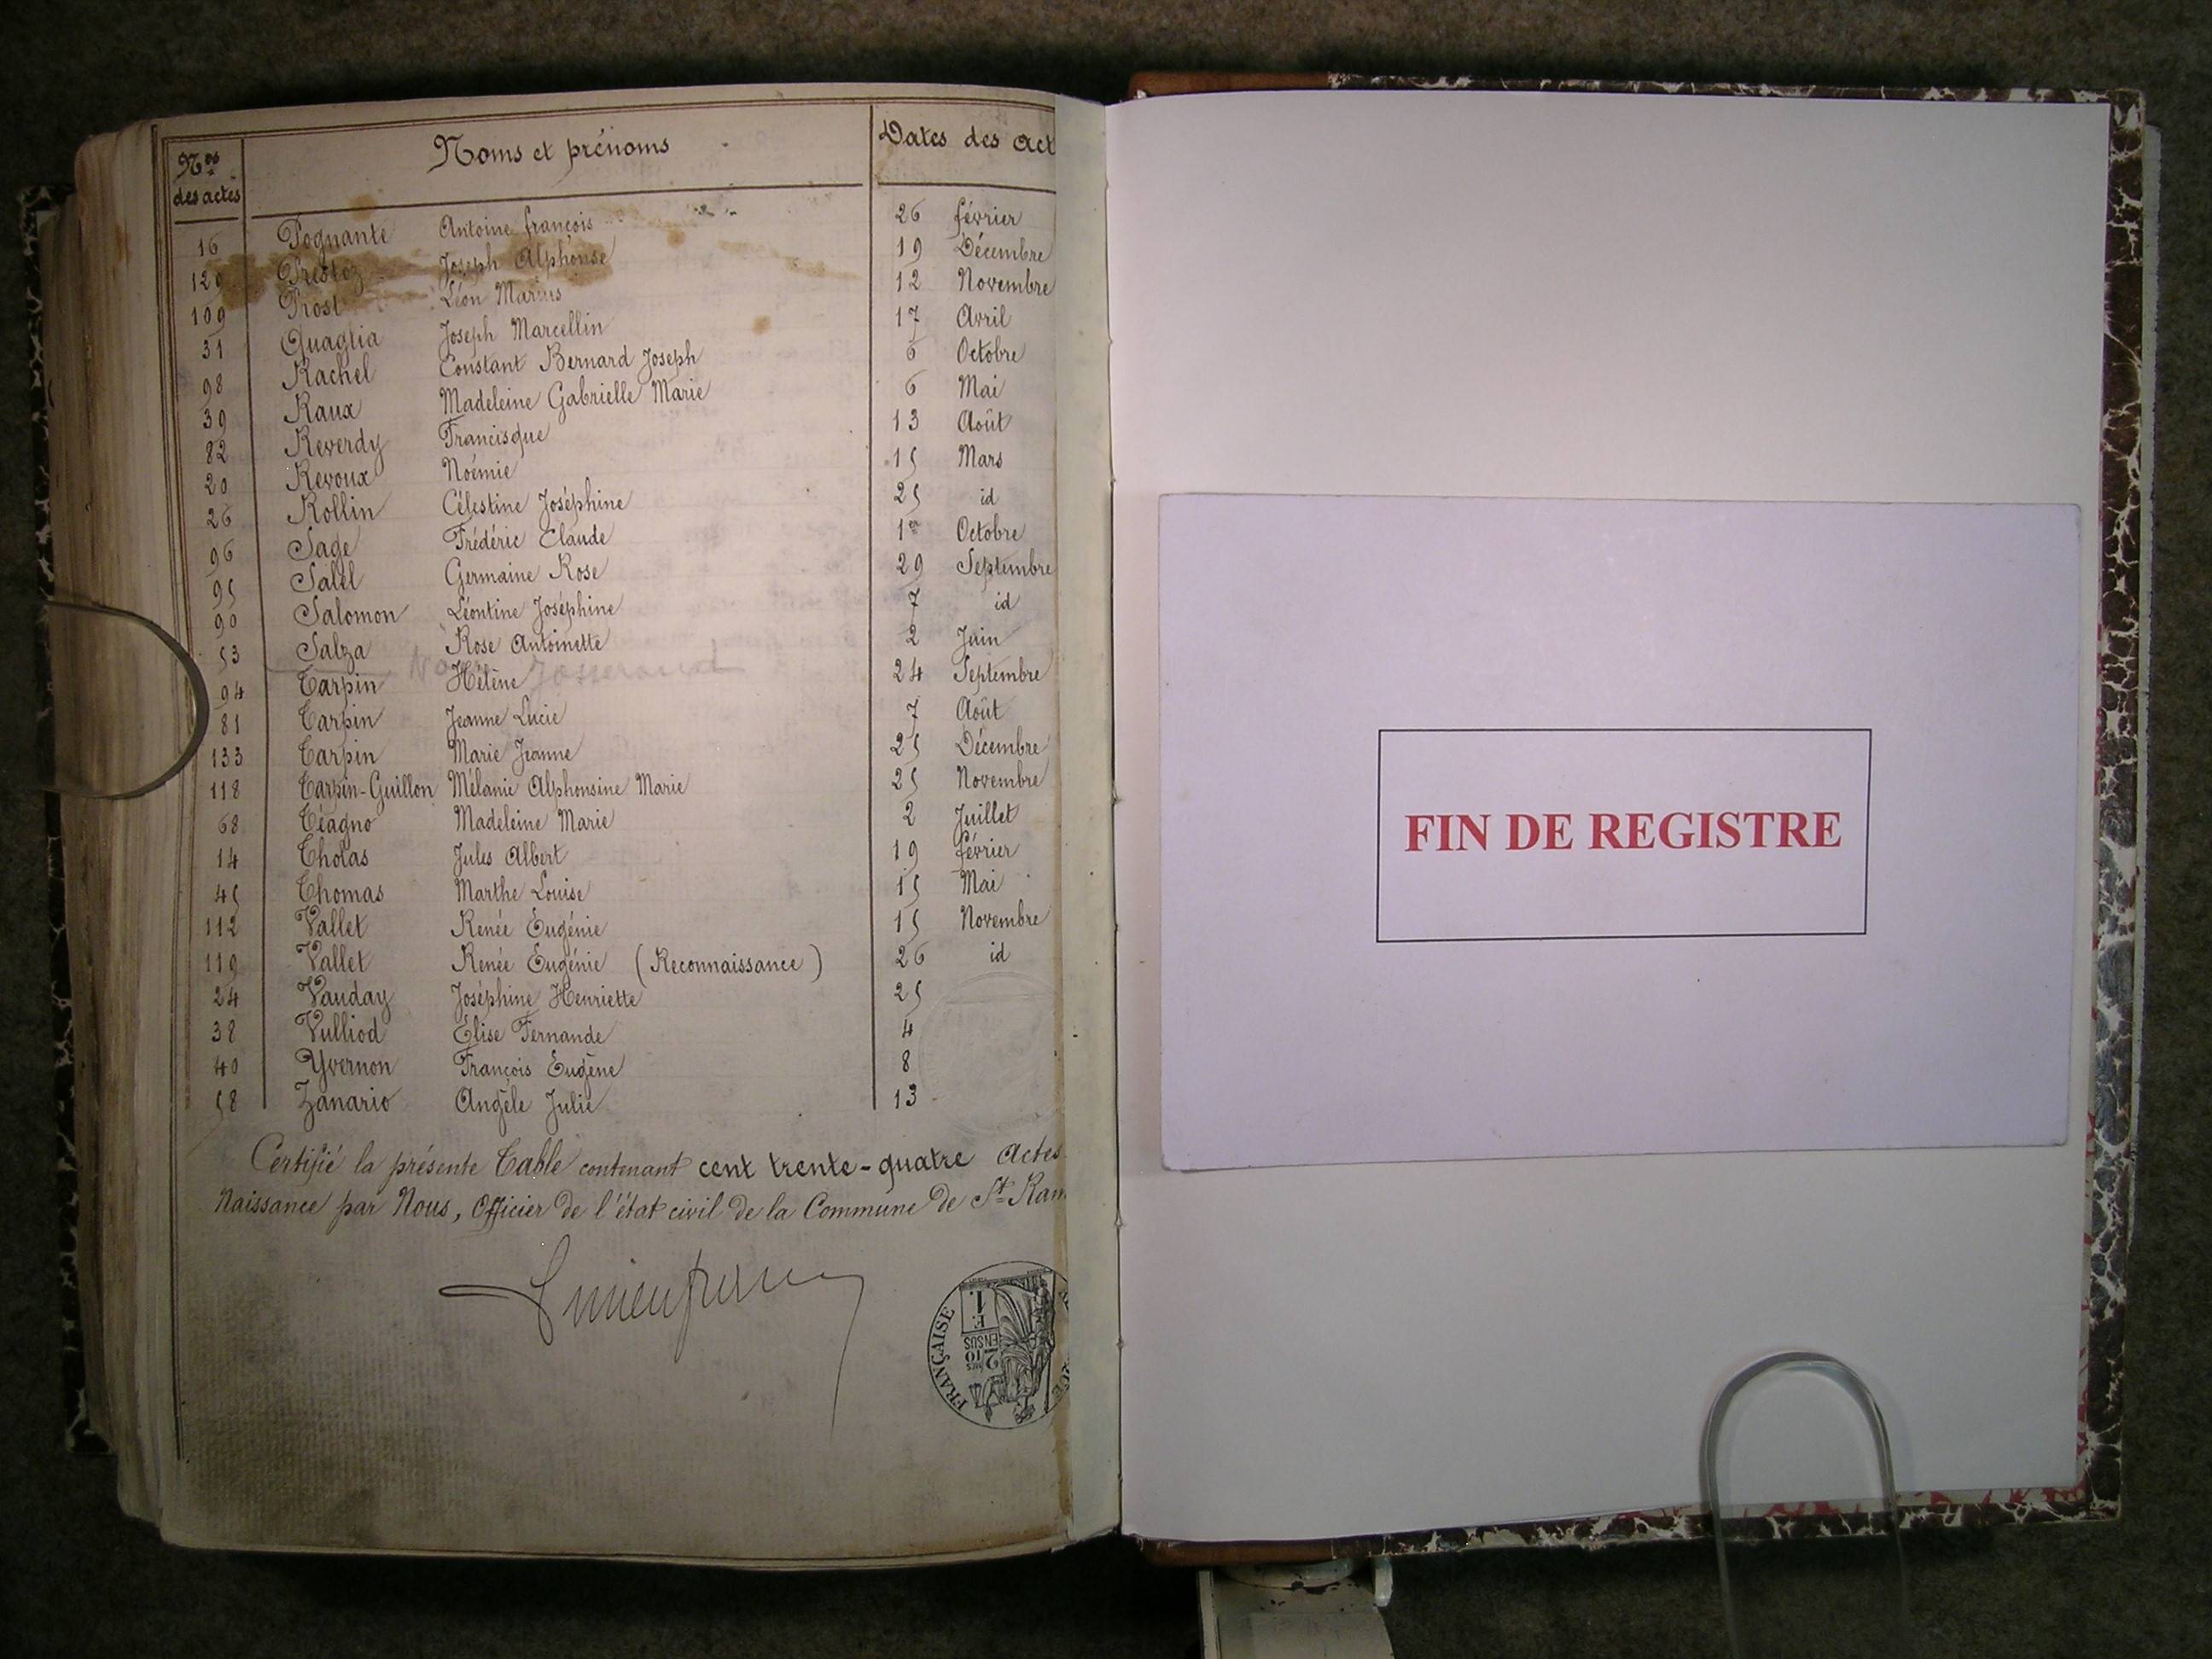 Nos des actes Noms et prénoms Dates des act
16 Pognante Antoine françois 26 février
129 Prestoz Joseph Alphonse 19 Décembre
109 Prost Léon Marius 12 Novembre
31 Quaglia Joseph Marcellin 17 Avril
98 Rachel Constant Bernard Joseph 6 Octobre
39 Raux Madeleine Gabrielle Marie 6 Mai
82 Reverdy Francisque 13 Août
20 Revoux Noémie 15 Mars
26 Rollin Célestine Joséphine 25 id
96 Sage Frédéric Claude 1er Octobre
95 Salel Germaine Rose 29 Septembre
90 Salomon Léontine Joséphine 7 id
53 Salza Rose Antoinette 2 Juin
94 Tarpin Hélène Josserand 24 Septembre
81 Tarpin Jeanne Lucie 7 Août
133 Tarpin Marie Jeanne 25 Décembre
118 Tarpin-Guillon Mélanie Alphonsine Marie 25 Novembre
68 Téagno Madeleine Marie 2 Juillet
14 Tholas Jules Albert 19 février
45 Thomas Marthe Louise 15 Mai
112 Vallet Renée Eugénie 15 Novembre
119 Vallet Renée Eugénie (Reconnaissance) 26 id
24 Vauday Joséphine Henriette 25
38 Vulliod Élise Fernande 4
40 Yvernon François Eugène 8
58 Zanario Angèle Julie 13
Certifié la présente Table contenant cent trente-quatre Actes
Naissance par Nous, Officier de l'état civil de la Commune de St Ram
FRANÇAISE
1 F.
2 10es
EN SUS
FIN DE REGISTRE